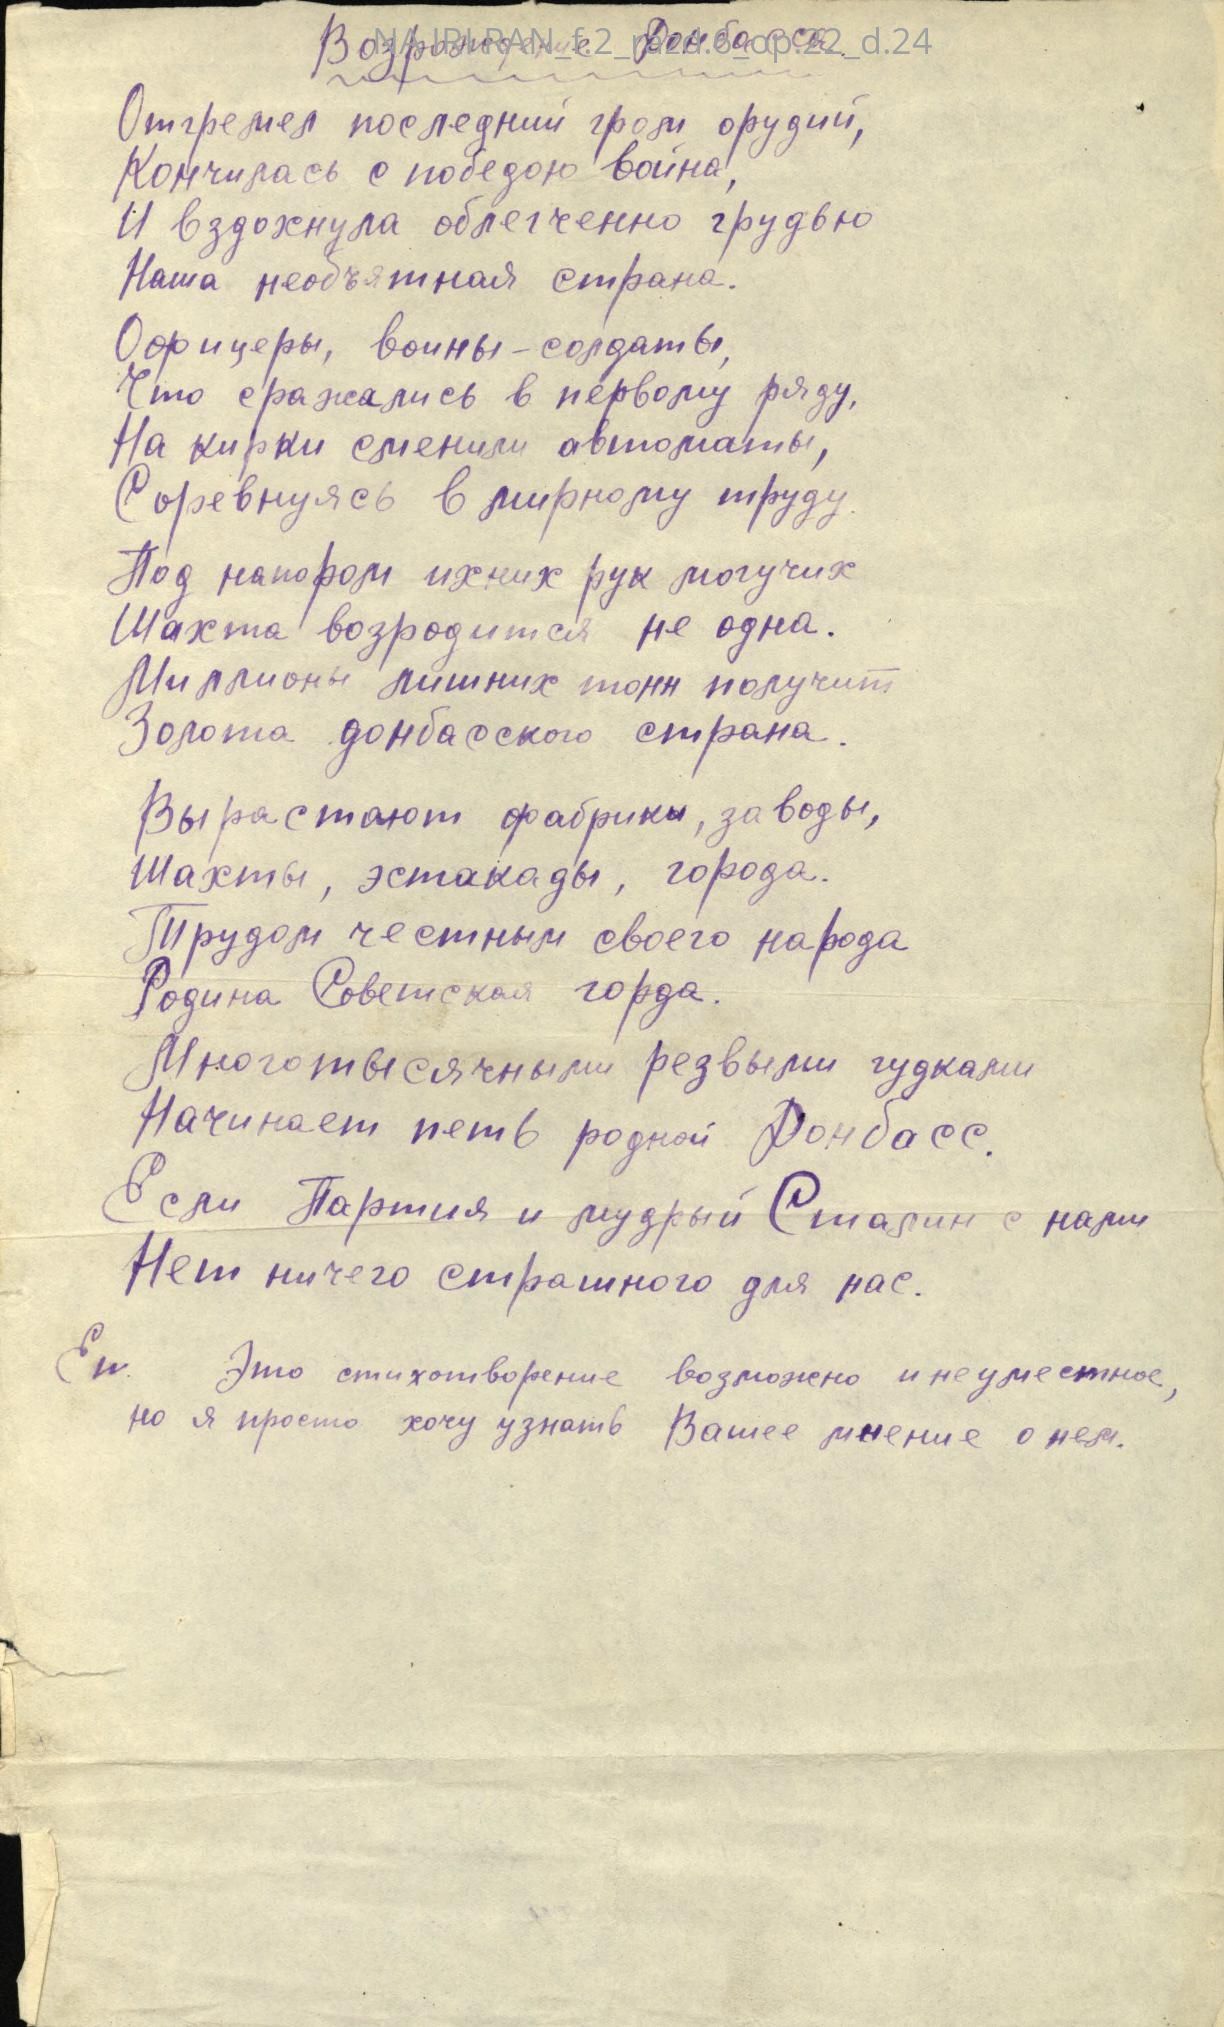 Возрождение Донбасса.
NA_IRI_RAN_f.2_razd.6_op.22_d.24
Отгремел последний гром орудий,
Кончилась с победою война,
И вздохнула облегченно грудью
Наша необъятная страна.
Офицеры, воины-солдаты,
Что сражались в первому ряду,
На кирки сменили автоматы,
Соревнуясь в мирному труду.
Под напором ихних рук могучих
Шахта возродится не одна.
Миллионы лишних тонн получит
Золота донбасского страна.
Вырастают фабрики, заводы,
Шахты, эстакады, города.
Трудом честным своего народа
Родина Советская горда.
Многотысячными резвыми гудками
Начинает петь родной Донбасс.
Если Партия и мудрый Сталин с нами
Нет ничего страшного для нас.
Это стихотворение возможно и неуместное,
но я просто хочу узнать Вашее мнение о нем.